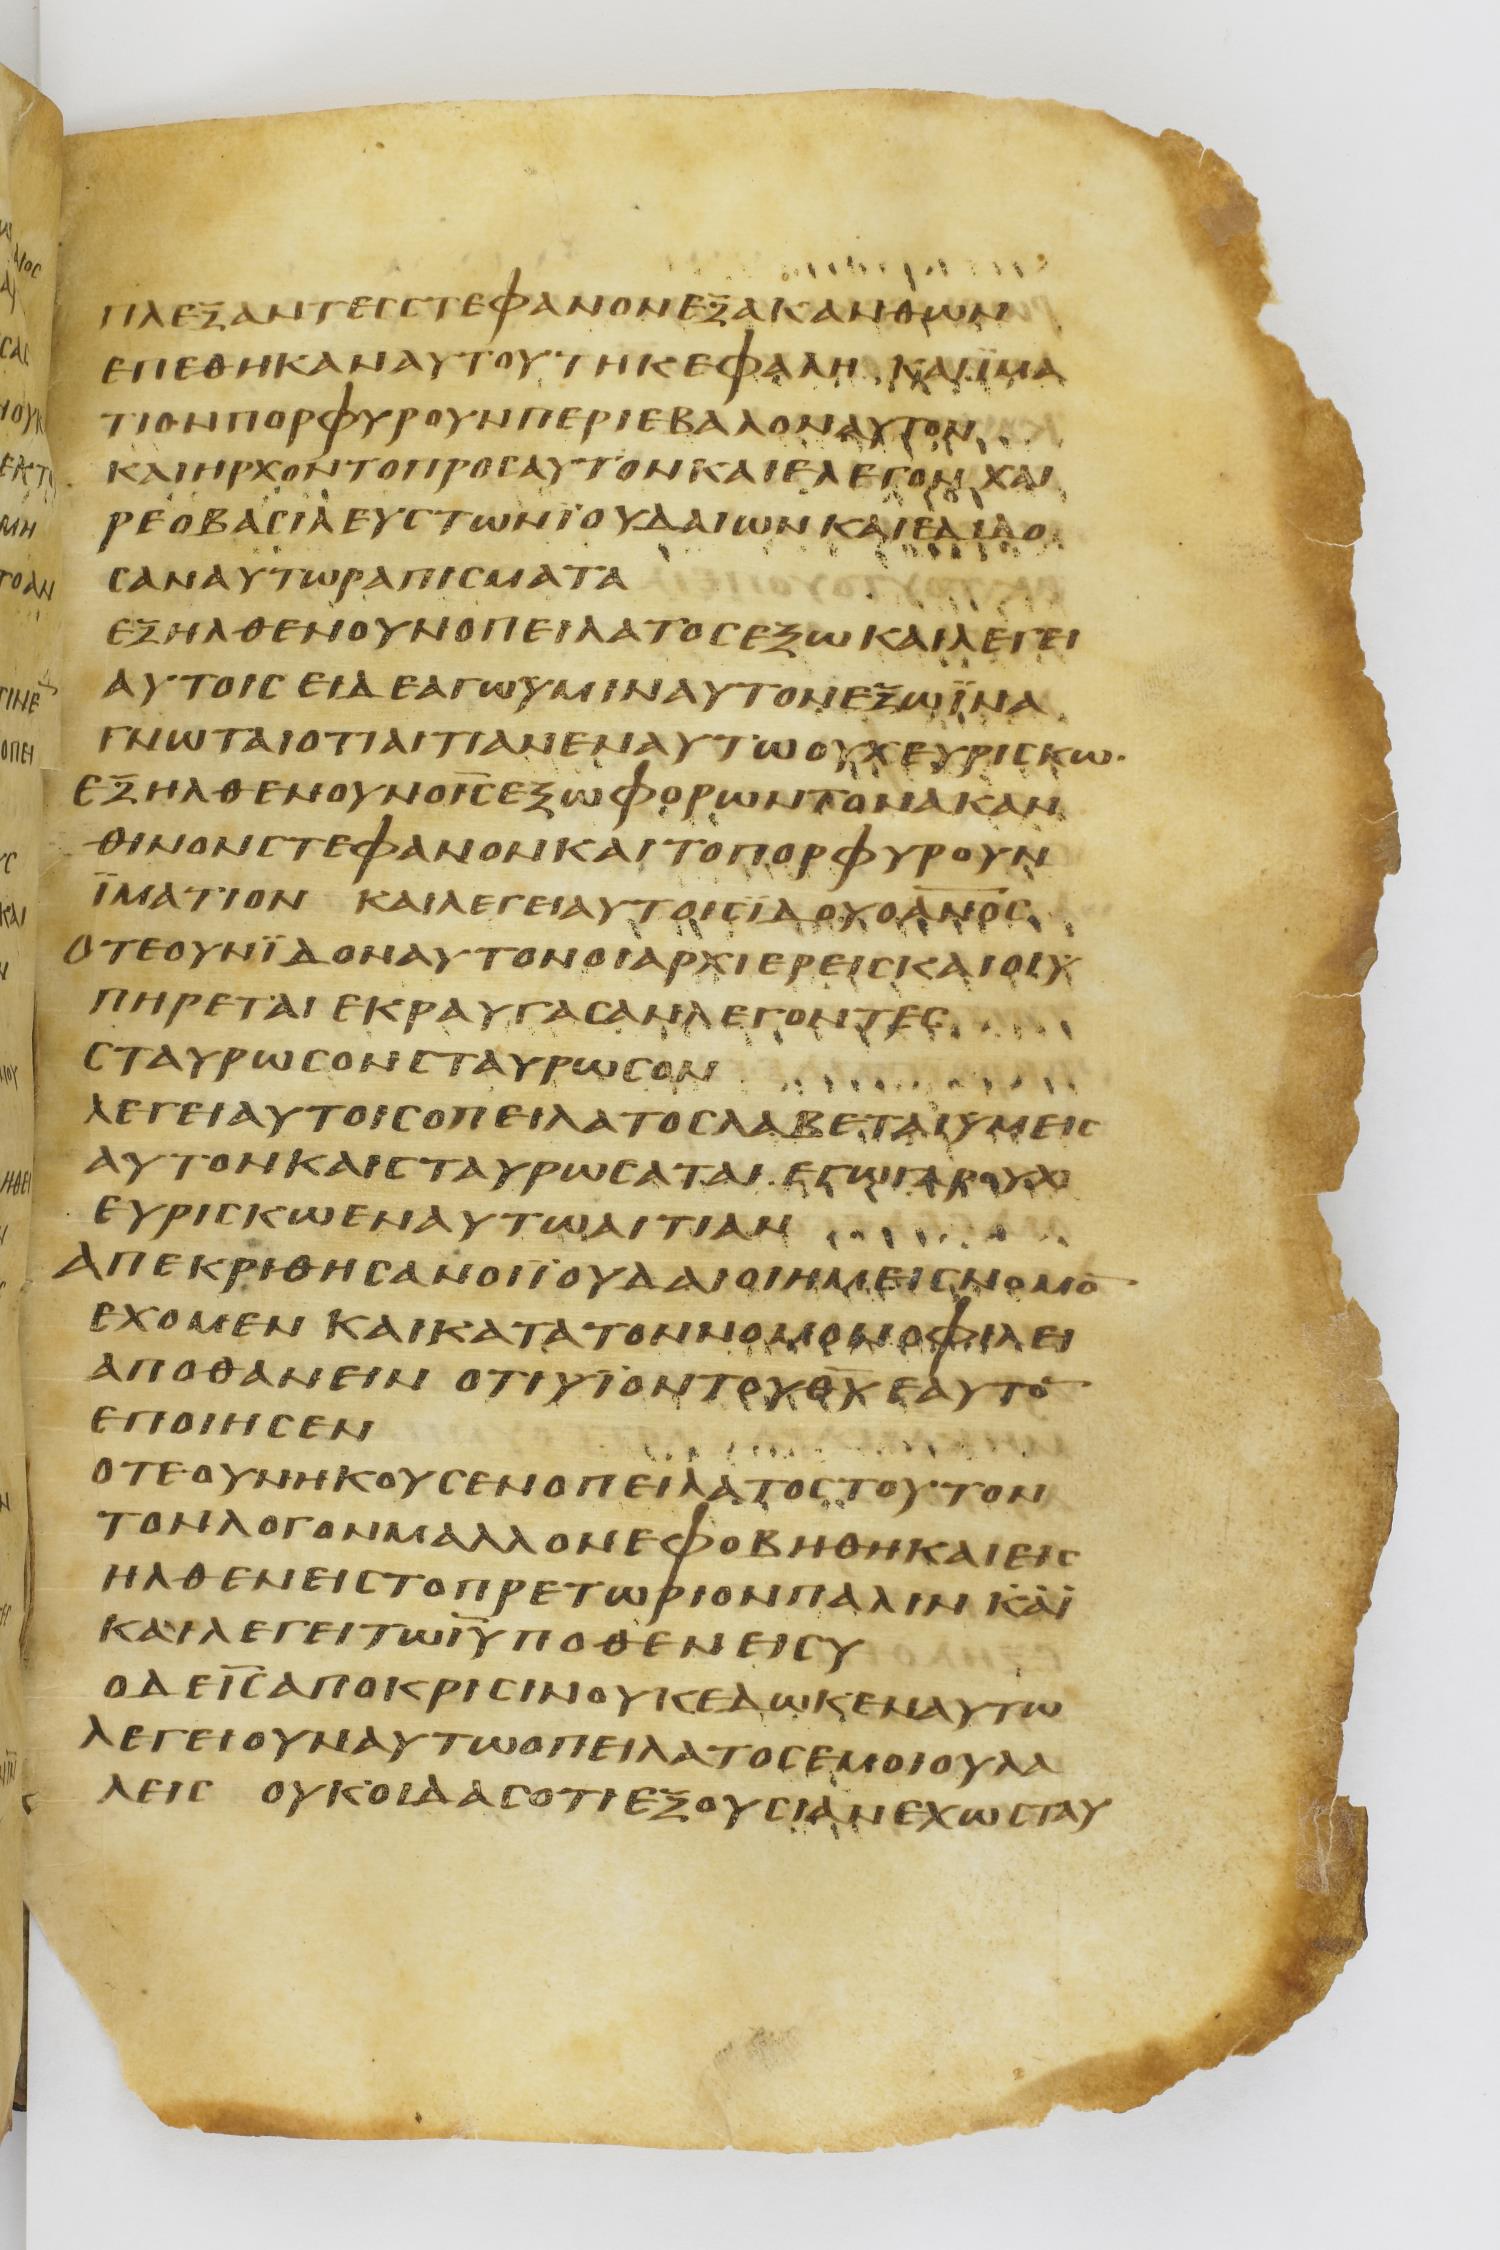 ΠΛΕΞΑΝΤΕΣΣΤΕΦΑΝΟΝΕΞΑΚΑΝΘΩΝ
ΕΠΕΘΗΚΑΝΑΥΤΟΥΤΗΚΕΦΑΛΗ ΚΑΙΪΜΑ
ΤΙΟΝΠΟΡΦΥΡΟΥΝΠΕΡΙΕΒΑΛΟΝΑΥΤΟΝ
ΚΑΙΗΡΧΟΝΤΟΠΡΟΣΑΥΤΟΝΚΑΙΕΛΕΓΟΝΧΑΙ
ΡΕΟΒΑΣΙΛΕΥΣΤΩΝΪΟΥΔΑΙΩΝΚΑΙΕΔΙΔΟ
ΣΑΝΑΥΤΩΡΑΠΙΣΜΑΤΑ
ΕΞΗΛΘΕΝΟΥΝΟΠΕΙΛΑΤΟΣΕΞΩΚΑΙΛΕΓΕΙ
ΑΥΤΟΙΣΕΙΔΕΑΓΩΫΜΙΝΑΥΤΟΝΕΞΩΪΝΑ
ΓΝΩΤΑΙΟΤΙΑΙΤΙΑΝΕΝΑΥΤΩΟΥΧΕΥΡΙΣΚΩ·
ΕΞΗΛΘΕΝΟΥΝΟΙ̅Σ̅ΕΞΩΦΟΡΩΝΤΟΝΑΚΑΝ
ΘΙΝΟΝΣΤΕΦΑΝΟΝΚΑΙΤΟΠΟΡΦΥΡΟΥΝ
ΪΜΑΤΙΟΝ ΚΑΙΛΕΓΕΙΑΥΤΟΙΣΪΔΟΥΟΑ̅Ν̅Ο̅Σ̅
ΟΤΕΟΥΝΪΔΟΝΑΥΤΟΝΟΙΑΡΧΙΕΡΕΙΣΚΑΙΟΙΥ
ΠΗΡΕΤΑΙΕΚΡΑΥΓΑΣΑΝΛΕΓΟΝΤΕΣ
ΣΤΑΥΡΩΣΟΝΣΤΑΥΡΩΣΟΝ
ΛΕΓΕΙΑΥΤΟΙΣΟΠΕΙΛΑΤΟΣΛΑΒΕΤΑΙΫΜΕΙΣ
ΑΥΤΟΝΚΑΙΣΤΑΥΡΩΣΑΤΑΙ·ΕΓΩΓΑΡΟΥΧ
ΕΥΡΙΣΚΩΕΝΑΥΤΩΑΙΤΙΑΝ
ΑΠΕΚΡΙΘΗΣΑΝΟΙΪΟΥΔΑΙΟΙΗΜΕΙΣΝΟΜΟ̅
ΕΧΟΜΕΝ ΚΑΙΚΑΤΑΤΟΝΝΟΜΟΝΟΦΙΛΕΙ
ΑΠΟΘΑΝΕΙΝ ΟΤΙΥΪΟΝΤΟΥΘ̅Υ̅ΕΑΥΤΟ̅
ΕΠΟΙΗΣΕΝ
ΟΤΕΟΥΝΗΚΟΥΣΕΝΟΠΕΙΛΑΤΟΣΤΟΥΤΟΝ
ΤΟΝΛΟΓΟΝΜΑΛΛΟΝΕΦΟΒΗΘΗΚΑΙΕΙΣ
ΗΛΘΕΝΕΙΣΤΟΠΡΕΤΩΡΙΟΝΠΑΛΙΝ ΚΑΙ
ΚΑΙΛΕΓΕΙΤΩΙ̅Υ̅ΠΟΘΕΝΕΙΣΥ
ΟΔΕΙ̅Σ̅ΑΠΟΚΡΙΣΙΝΟΥΚΕΔΩΚΕΝΑΥΤΩ
ΛΕΓΕΙΟΥΝΑΥΤΩΟΠΕΙΛΑΤΟΣΕΜΟΙΟΥΛΑ
ΛΕΙΣ ΟΥΚΟΙΔΑΣΟΤΙΕΞΟΥΣΙΑΝΕΧΩΣΤΑΥ